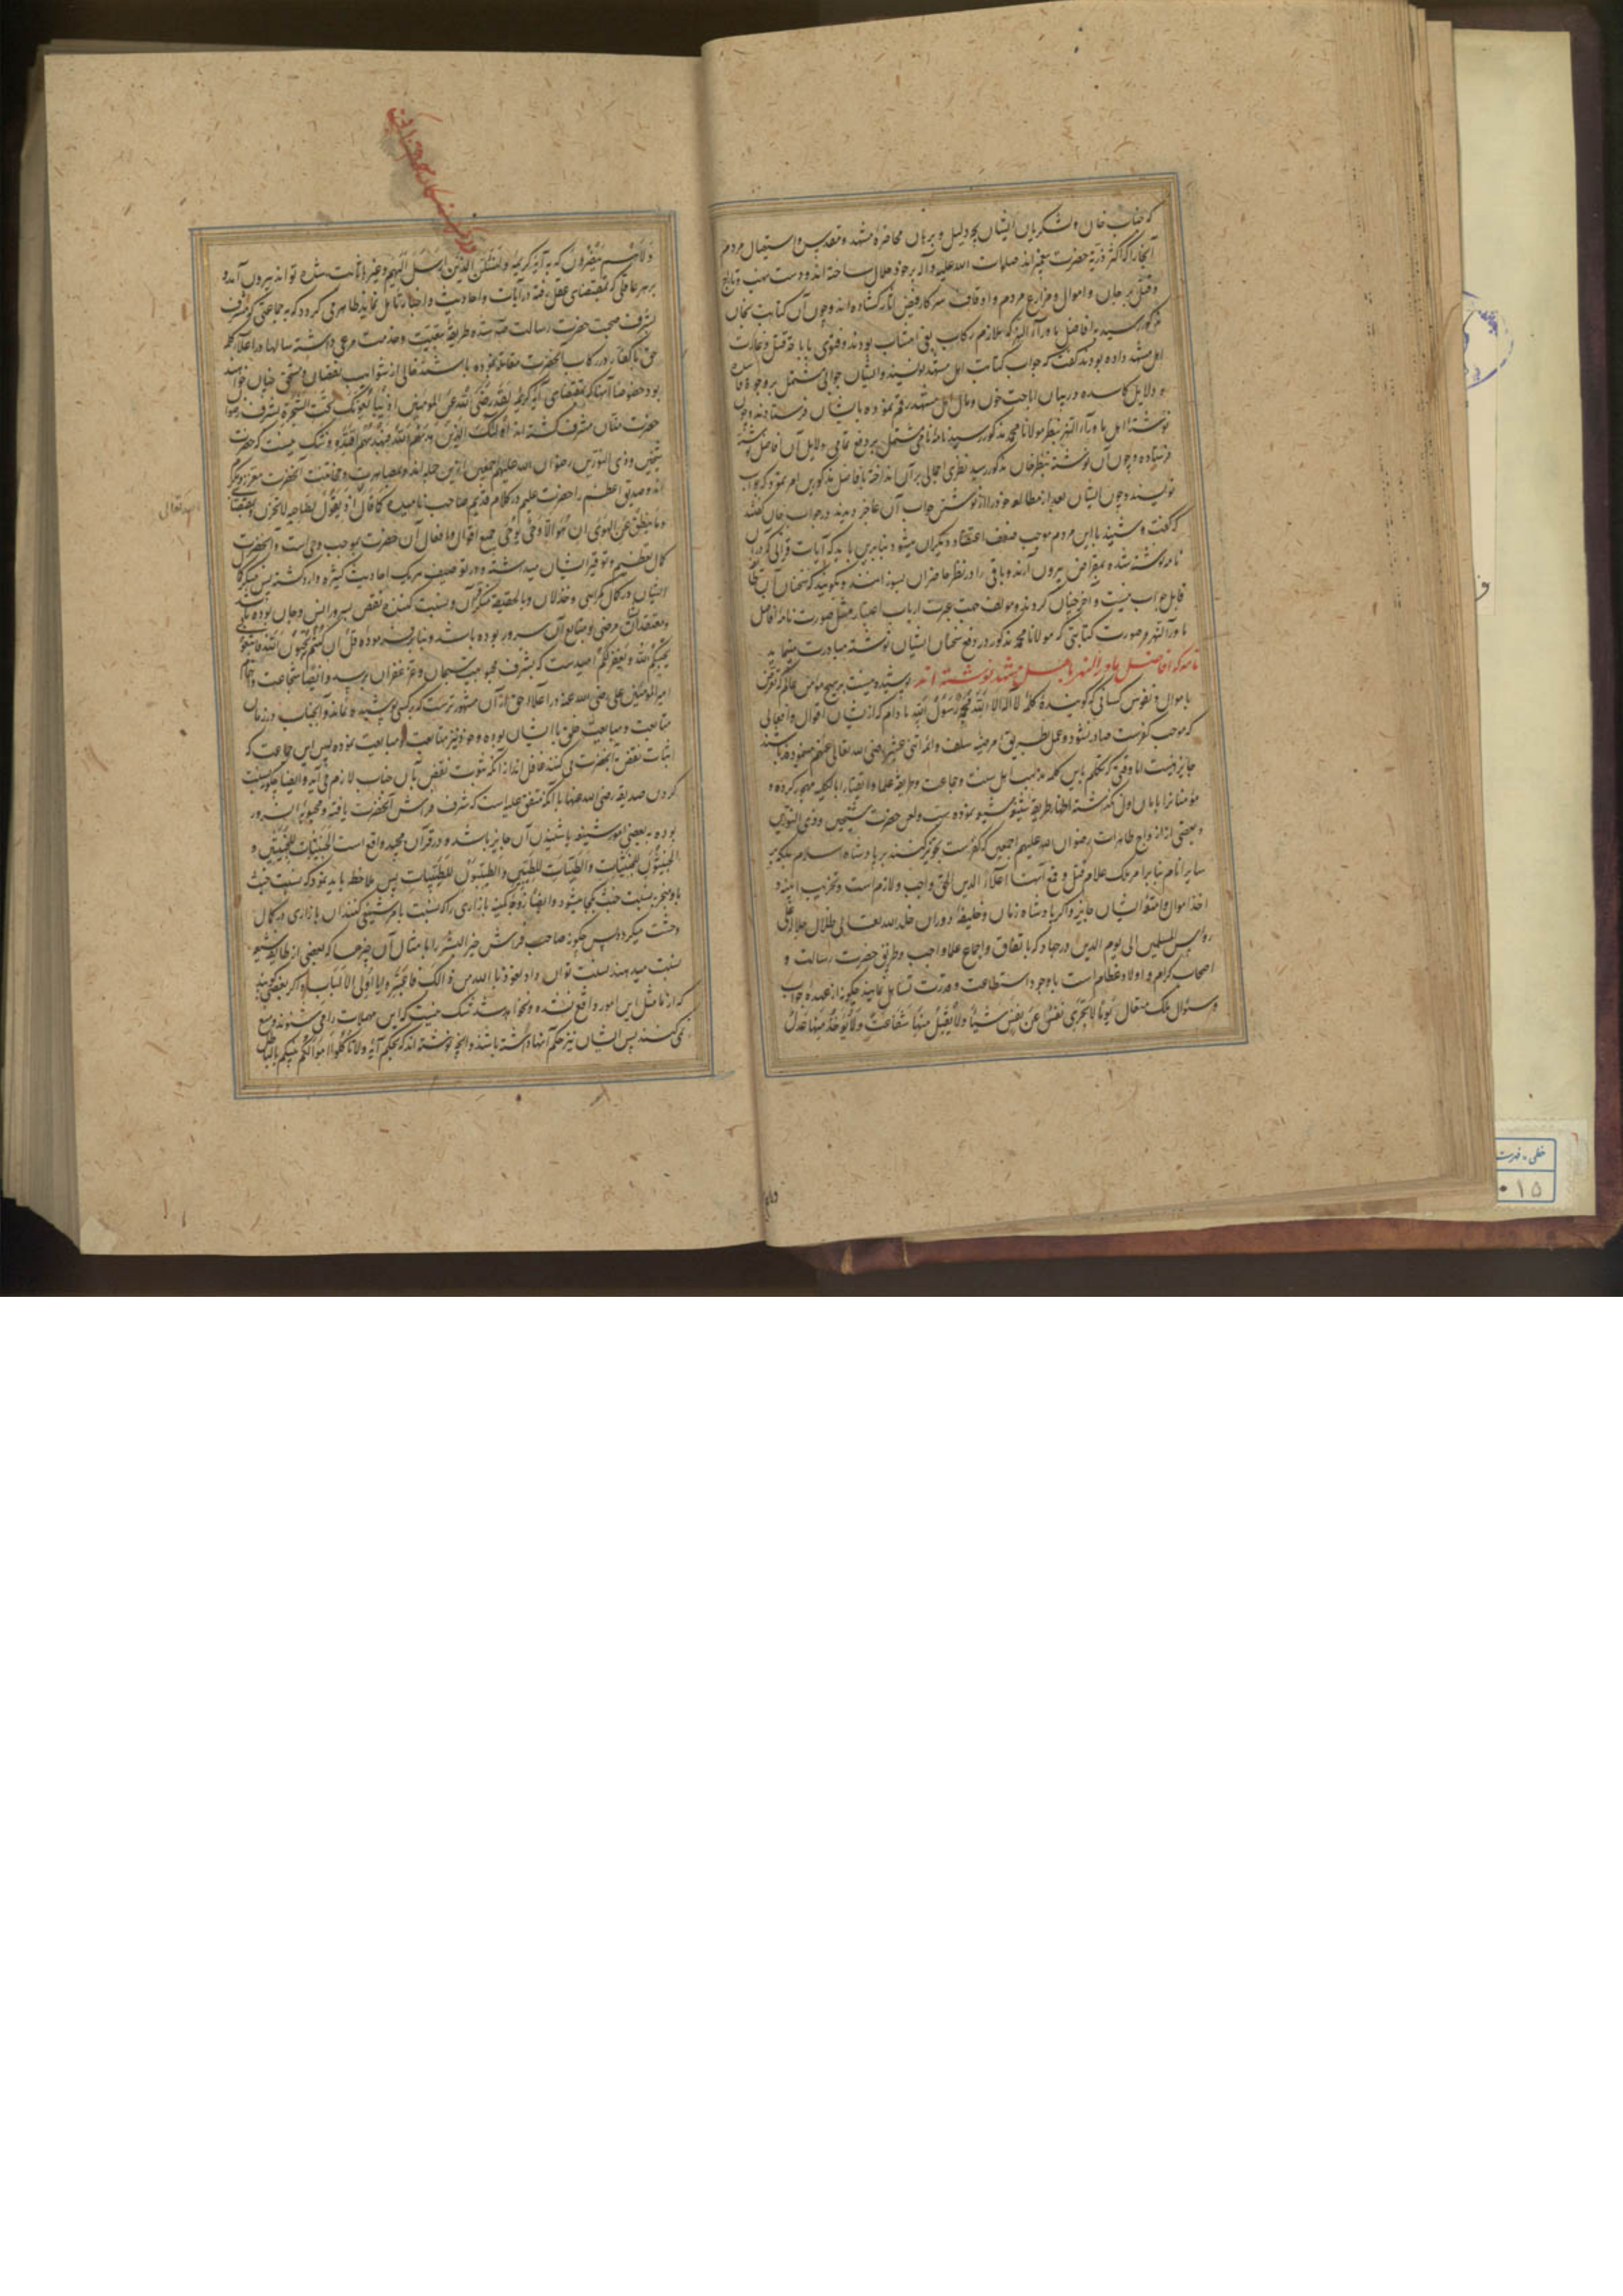 که جناب خان و لشکریان ایشان بچه دلیل و برهان محاصرهٔ مشهد مقدس و استیصال مردم
آنجا را که اکثر ذریهٔ حضرت پیغمبراند صلوات الله علیه و آله بر خود حلال ساخته اند و دست نهب و تاراج
و قتل بر جان و اموال و مزارع مردم و اوقاف سرکار فیض آثار کشاده اند و چون آن کتابت بخان
مذکور رسید با فاضل ماوراء النهر که ملازم رکاب بودند و فتوی باباحه قتل و غارت
اهل مشهد داده بودند گفت که جواب کتابت اهل مشهد نویسند و ایشان جوابی مشتمل بر وجوه
و دلایل کاسده در بیان اباحت خون و مال اهل مشهد رقم نموده بایشان فرستادند و چون
نوشته اهل ماوراء النهر بنظر مولانا محمد مذکور رسید نامه نامی مشتمل بر دفع تمامی دلایل آن افاضل نوشته
فرستاده و چون آن نوشته بنظر خان مذکور رسید نظری اجمالی بر آن انداخته بافاضل مذکورین امر نمود که جواب
نویسند و چون ایشان بعد از مطالعه خود را از نوشتن جواب آن عاجز دیدند در جواب خان گفتند
که گفت و شنید با این مردم موجب ضعف اعتقاد دیگران میشود بنابرین باید که آیات قرآنی که در آن
نامه نوشته شده بمقراض بیرون آرند و باقی را در نظر حاضران بسوزانند و بگویند که سخنان آن
قابل جواب نیست و آخر چنان کردند و مؤلف جهت عبرت ارباب اعتبار مثل صورت نامه افاضل
ماوراء النهر و صورت کتابتی که مولانا محمد مذکور در دفع سخنان ایشان نوشته مبادرت مینماید
نامه که افاضل ماوراء النهر باهل مشهد نوشته اند پوشیده نیست بر هیچ مؤمن عالم که تعرض
باموال و نفوس کسانی که گویندهٔ کلمهٔ لا اله الا الله محمد رسول الله مادام که از ایشان اقوال و افعالی
که موجب کفرست صادر نشود و عمل بطریق مرضیهٔ سلف و ائمه اثنی عشر رضی الله تعالی عنهم مینموده باشند
جایز نیست اما وقتی که تکلم باین کلمه مذهب اهل سنت و جماعت و طریقه علما و اتقیا را بالکلیه مهجور کرده
اظهار طریقه شنیعه شیعه نموده سب و لعن حضرت شیخین و ذی النورین
و بعضی از ازواج طاهرات رضوان الله علیهم اجمعین که کفرست تجویز کنند بر پادشاه اسلام بلکه بر
سایر انام بنا بر امر ملک علام قتل و قمع آنها اعلاءً لدین الحق واجب و لازم است و تخریب ابنیه و
اخذ اموال و امتعهٔ ایشان جایز و اگر پادشاه زمان و خلیفهٔ دوران خلد الله تعالی ظلال جلاله علی
رؤس المسلمین الی یوم الدین در جهاد که باتفاق و اجماع علما واجب و طریق حضرت رسالت و
اصحاب کرام و اولاد عظام است با وجود استطاعت و قدرت تساهل نمایند چگونه از عهدهٔ جواب
و سؤال ملک متعال یوماً لا تجزی نفس عن نفس شیئا ولا یقبل منها شفاعة ولا یؤخذ منها عدل
ولا هم ینصرون که به آیه کریمه ولنسئلن الذین ارسل الیهم و غیر ذلک ثابت شده توانند بیرون آمد و
بر هر عاقلی که بمقتضای عقل رفته در آیات و احادیث و اخبار تأمل نماید ظاهر می گردد که به جماعتی که مشرف
بشرف صحبت حضرت رسالت شده طریقهٔ تبعیت و خدمت مرعی داشته سالها در اعلاء کلمه
حق با کفار در رکاب آنحضرت مقاتله نموده باشند خالی از شوایب نقصان و مستحق جنان خواهند
بود خصوصا آنها که بمقتضای آیه کریمه لقد رضی الله عن المومنین اذ یبایعونک تحت الشجرة بشرف رضوان
حضرت منان مشرف گشته اند اولئک الذین هدیهم الله فبهدیهم اقتده و شک نیست که حضرت
شیخین و ذی النورین رضوان الله علیهم اجمعین ازین جمله اند و بمصاهرت و مخاتنت آنحضرت معزز
اند و صدیق اعظم را حضرت علیم در کلام قدیم صاحب نامیده کما قال اذ یقول لصاحبه لا تحزن و بمقتضای
وما ینطق عن الهوی ان هو الا وحی یوحی جمیع اقوال و افعال آن حضرت بموجب وحی است و آنحضرت
کمال تعظیم و توقیر ایشان میداشته و در توصیف هر یک احادیث کثیره وارد گشته پس منکر کمال
ایشان در کمال گمراهی و خذلان و بالحقیقة منکر قرآن و نسبت کنندهٔ نقص بسرور انس و جان بوده
و معتقدان مرضی و متابع آن سرور بوده باشند و بنابر فرموده قل ان کنتم تحبون الله فاتبعونی
یحببکم الله و یغفر لکم امیدست که بشرف محبوبیت سبحان و عز غفران برسند و ایضا شجاعت و اهتمام
امیر المومنین علی رضی الله عنه در اعلاء حق از آن مشهورترست که بر کسی پوشیده نماند و آنجناب در زمان
متابعت و مبایعت خلق با ایشان بوده و خود نیز متابعت و مبایعت نموده پس این جماعت که
اثبات نقص بآنحضرت می کنند غافل اند از آنکه ثبوت نقص بآن جناب لازم می آید و ایضا چگونه نسبت
کردن صدیقه رضی الله عنها با آنکه متفق علیه است که شرف فراش آنحضرت یافته و محبوبهٔ آن سرور
بوده به بعضی امور شنیعه یا شنیدن آن جایز باشد و در قرآن مجید واقع است الخبیثات للخبیثین و
الخبیثون للخبیثات و الطیبات للطیبین و الطیبون للطیبات پس ملاحظه باید نمود که نسبت خبث
باو منجر بنسبت خبث بکجا میشود و ایضا بازاری را که نسبت بامر شنیع کنند آن بازاری در کمال
وحشت میگردد پس چگونه صاحب فراش خیر البشر را بامثال آن چیزها که بعضی از طایفه شیعه
نسبت میدهند نسبت توان داد نعوذ بالله من ذلک فاعتبروا یا اولی الالباب و اگر بعضی گویند
که از ما مثل این امور واقع نشده و نخواهد شد شک نیست که این مهملات را می شنوند و منع
نمی کنند پس ایشان نیز حکم آنها داشته باشند و آنچه نوشته اند که بحکم آیه ولا تاکلوا اموالکم بینکم بالباطل
ولا
خطی - فهرست
۰۱۵